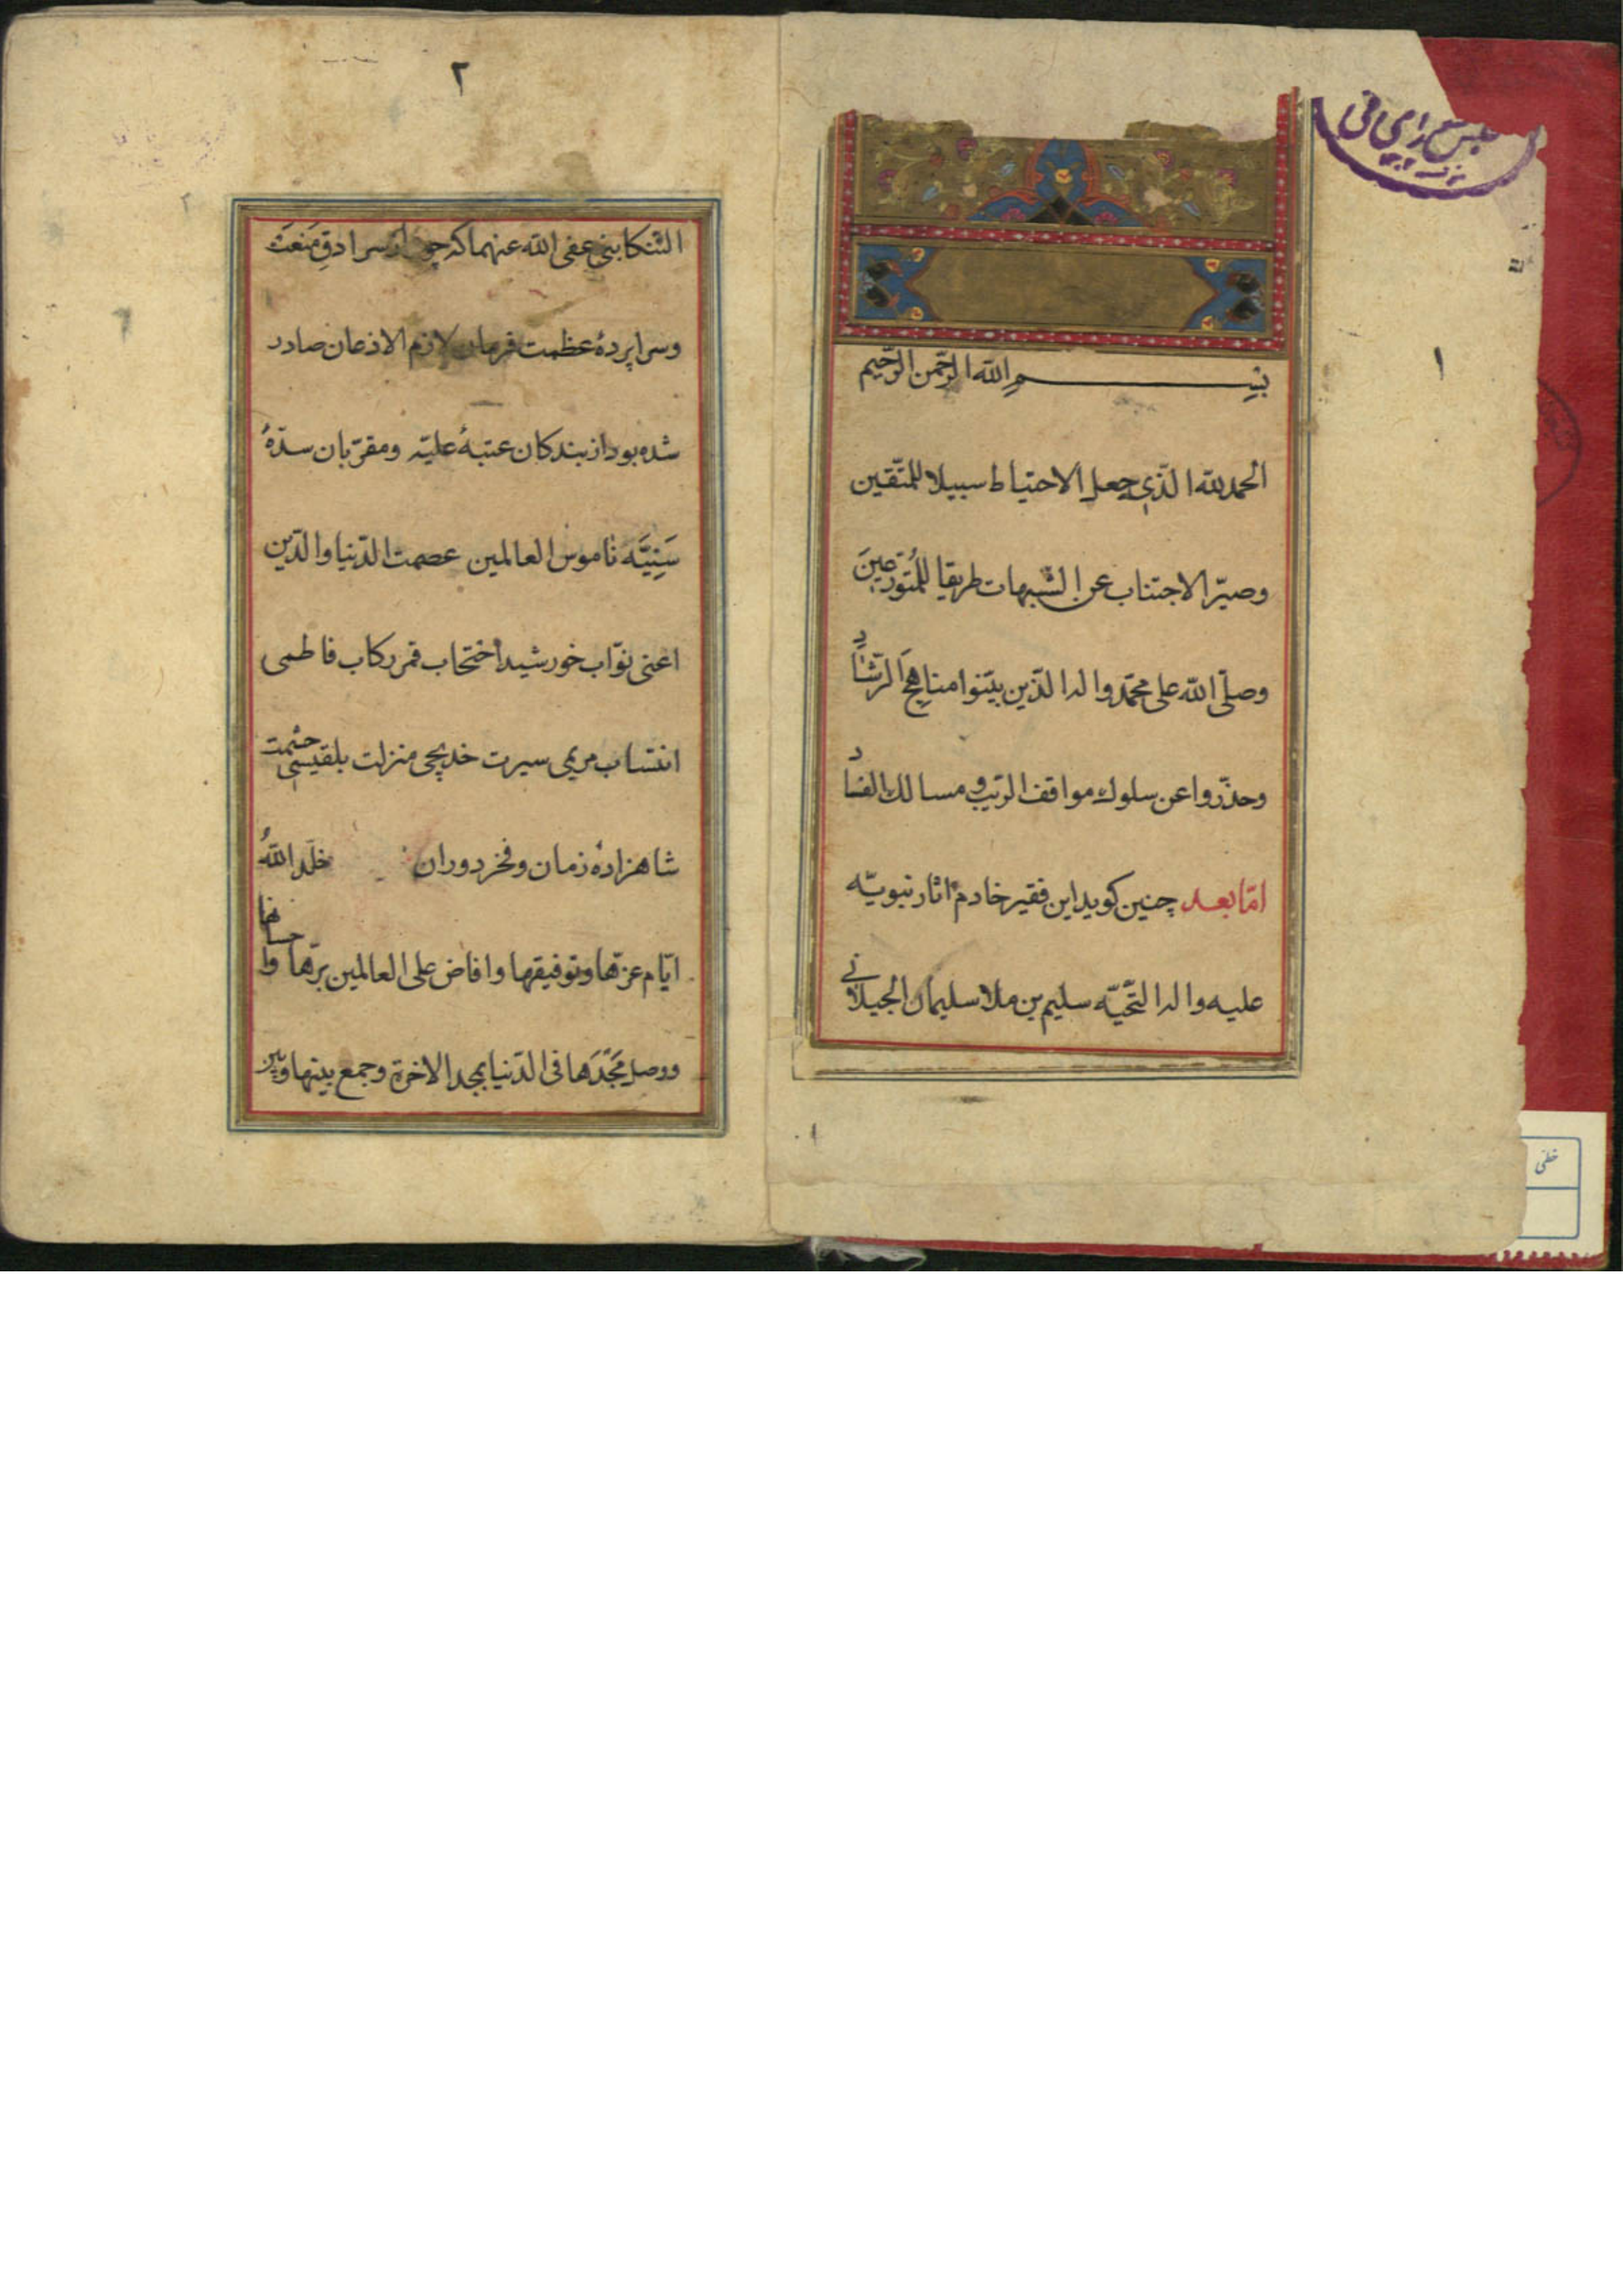 ۱
بسم الله الرّحمن الرّحیم
الحمد لله الّذی جعل الاحتیاط سبیلا للمتّقین
وصیّر الاجتناب عن الشّبهات طریقا للمُتورّعینَ
وصلّی الله علی محمّد واله الّذین بیّنوا مناهِجَ الرّشاد
وحذّروا عن سلوك مواقف الرّیب و مسالك الفساد
امّا بعد چنین کوید این فقیر خادم اثار نبویّه
علیه واله التّحیّه سلیم بن ملا سلیمان الجیلانی
۲
التّنکابنی عفی الله عنهما که چون از سرادقِ مَنعَت
وسراپردۀ عظمت فرمان لازم الاذعان صادر
شده بود از بندکان عتبۀ علیّه ومقرّبان سدّۀ
سَنِیَّه ناموس العالمین عصمت الدّنیا والدّین
اعنی نوّاب خورشید احتجاب قمر رکاب فاطمی
انتساب مریمی سیرت خدیجی منزلت بلقیسی حشمت
شاهزادۀ زمان وفخر دوران خلّد اللهُ
ایّام عزّها وتوفیقها وافاض علی العالمین برّها واحسانها
ووصل مَجَّدَها فی الدّنیا بمجد الاخرة وجمع بینها وبین
خطی